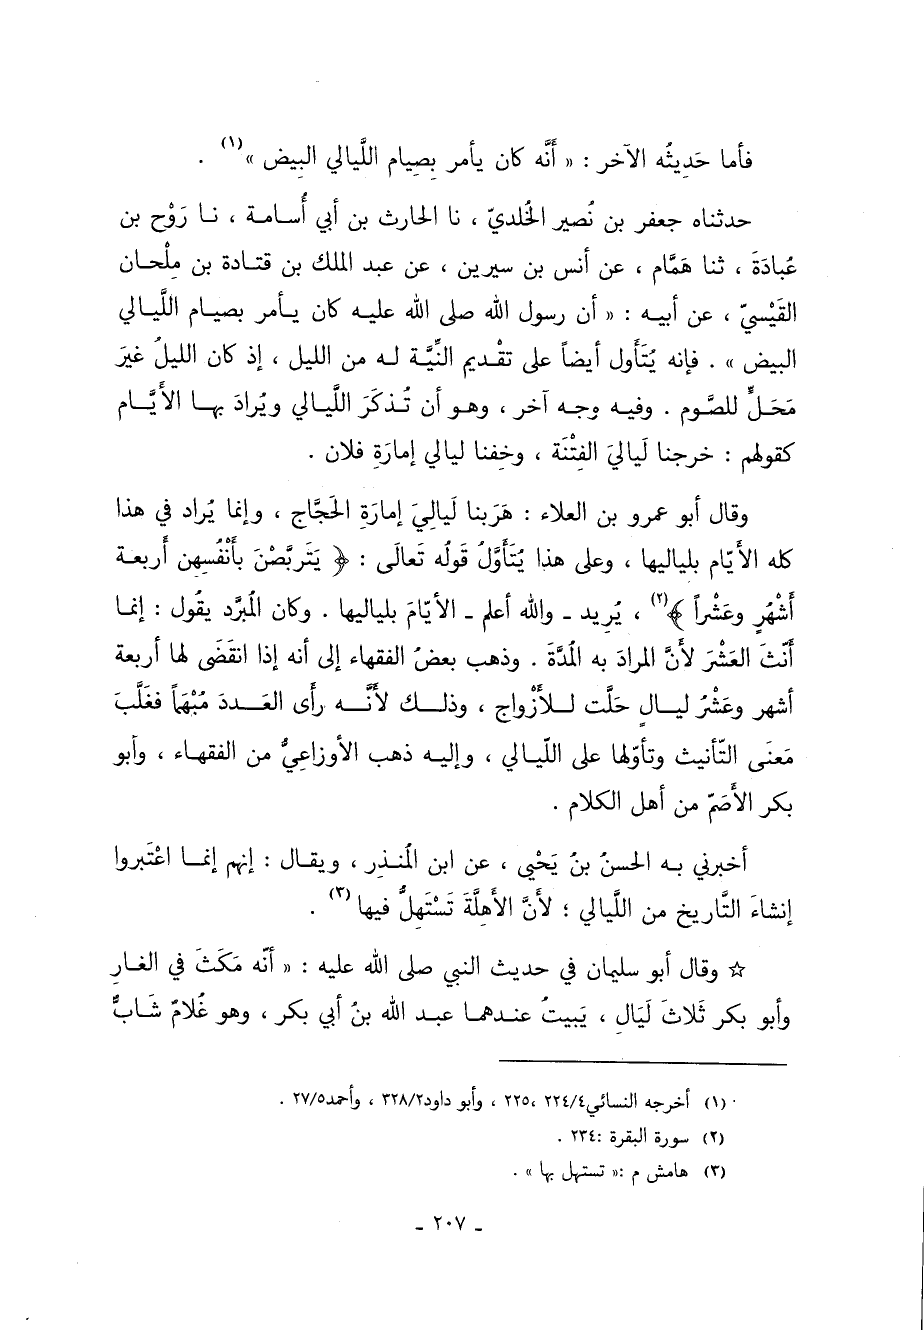 فأما حَدِيثُه الآخر : « أنَّه كان يأمر بصِيام اللَّيالي البيض »(١) .
حدثناه جعفر بن نُصير الخُلديّ ، نا الحارث بن أبي أُسامة ، نا رَوْح بن
عُبادَةَ ، ثنا هَمَّام ، عن أنس بن سيرين ، عن عبد الملك بن قتادة بن مِلْحان
القَيْسيّ ، عن أبيه : « أن رسول الله صلى الله عليه كان يأمر بصيام اللَّيالي
البيض » . فإنه يُتَأول أيضاً على تقْديم النِّيَّة له من الليل ، إذ كان الليلُ غيرَ
مَحَلٍّ للصَّوم . وفيه وجه آخر ، وهو أن تُذكَرَ اللَّيالي ويُرادَ بها الأيَّام
كقولهم : خرجنا لَيالَي الفِتْنَة ، وخِفنا ليالي إمارَةِ فلان .
وقال أبو عمرو بن العلاء : هَرَبنا لَيالِيَ إمارَةِ الحَجَّاج ، وإنما يُراد في هذا
كله الأيّام بلياليها ، وعلى هذا يُتَأوَّلُ قَولُه تَعالَى : ﴿ يَتَربَّصْنَ بأنْفُسِهن أربعة
أَشْهُرٍ وعَشْراً ﴾(٢) ، يُرِيد ـ والله أعلم ـ الأيّامَ بلياليها . وكان المُبرَّد يقُول : إنما
أنّثَ العَشْرَ لأنَّ المرادَ به المُدَّة . وذهب بعضُ الفقهاء إلى أنه إذا انقَضَى لها أربعة
أشهر وعَشْرُ ليالٍ حَلَّت للأزْواج ، وذلك لأنَّه رأى العَددَ مُبْهَماً فغَلَّبَ
مَعنَى التّأنيث وتأوّلها على اللّيالي ، وإليه ذهب الأوزاعِيُّ من الفقهاء ، وأبو
بكر الأصَمّ من أهل الكلام .
أخبرني به الحسنُ بنُ يَحْيى ، عن ابن المُنذِر ، ويقال : إنهم إنما اعْتَبروا
إنشاءَ التَّاريخ من اللَّيالي ؛ لأنَّ الأهِلَّةَ تَسْتَهِلُّ فيها(٣) .
☆ وقال أبو سليمان في حديث النبي صلى الله عليه : « أنّه مَكَثَ في الغارِ
وأبو بكر ثَلاثَ لَيَالٍ ، يَبِيتُ عندهما عبد الله بنُ أبي بكر ، وهو غُلامٌ شَابٌّ
(١) أخرجه النسائي٢٢٤/٤ ،٢٢٥ ، وأبو داود٣٢٨/٢ ، وأحمد٢٧/٥ .
(٢) سورة البقرة :٢٣٤ .
(٣) هامش م :« تستهل بها » .
ـ ٢٠٧ ـ